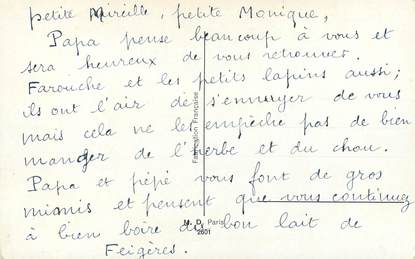 petite Mireille, petite Monique,
Papa pense beaucoup à vous et
sera heureux de vous retrouver.
Farouche et les petits lapins aussi;
ils ont l'air de s'ennuyer de vous
mais cela ne les empêche pas de bien
manger de l'herbe et du chou.
Papa et pépé vous font de gros
mimis et pensent que vous continuez
à bien boire du bon lait de
Feigères.
Fabrication Française
M. D. Paris
2601